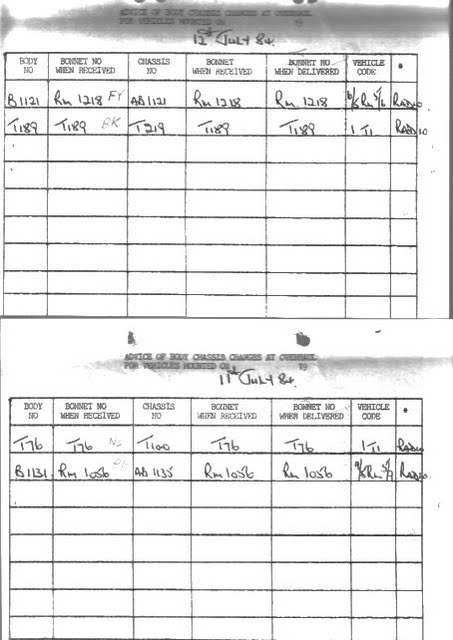 ADVICE OF BODY CHASSIS CHANGES AT OVERHAUL
FOR VEHICLES MOUNTED ON 19
12th July 84.
BODY NO BONNET NO WHEN RECEIVED CHASSIS NO BONNET WHEN RECEIVED BONNET NO WHEN DELIVERED VEHICLE CODE *
B1121 Rm 1218 FY AB1121 Rm 1218 Rm 1218 Rm RADIO
T189 T189 BK T219 T189 T189 1 T1 RADIO
ADVICE OF BODY CHASSIS CHANGES AT OVERHAUL
FOR VEHICLES MOUNTED ON 19
11th July 84.
BODY NO BONNET NO WHEN RECEIVED CHASSIS NO BONNET WHEN RECEIVED BONNET NO WHEN DELIVERED VEHICLE CODE *
T76 T76 T100 T76 T76 1 T1 RADIO
B1131 Rm 1056 AB1135 Rm 1056 Rm 1056 Rm RADIO